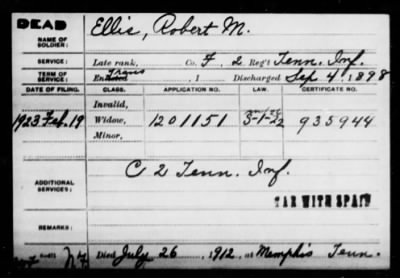 DEAD
NAME OF SOLDIER: Ellis, Robert M.
SERVICE: Late rank, Co. F, 2 Reg't Tenn. Inf.
TERM OF SERVICE: Trans
En , 1 Discharged Sep 4, 1898
DATE OF FILING. CLASS. APPLICATION NO. LAW. CERTIFICATE NO.
Invalid,
1923 Feb. 19 Widow, 1201151 3-1-22 935944
Minor,
ADDITIONAL SERVICES: C 2 Tenn. Inf.
WAR WITH SPAIN
REMARKS:
Died July 26, 1912, at Memphis Tenn.